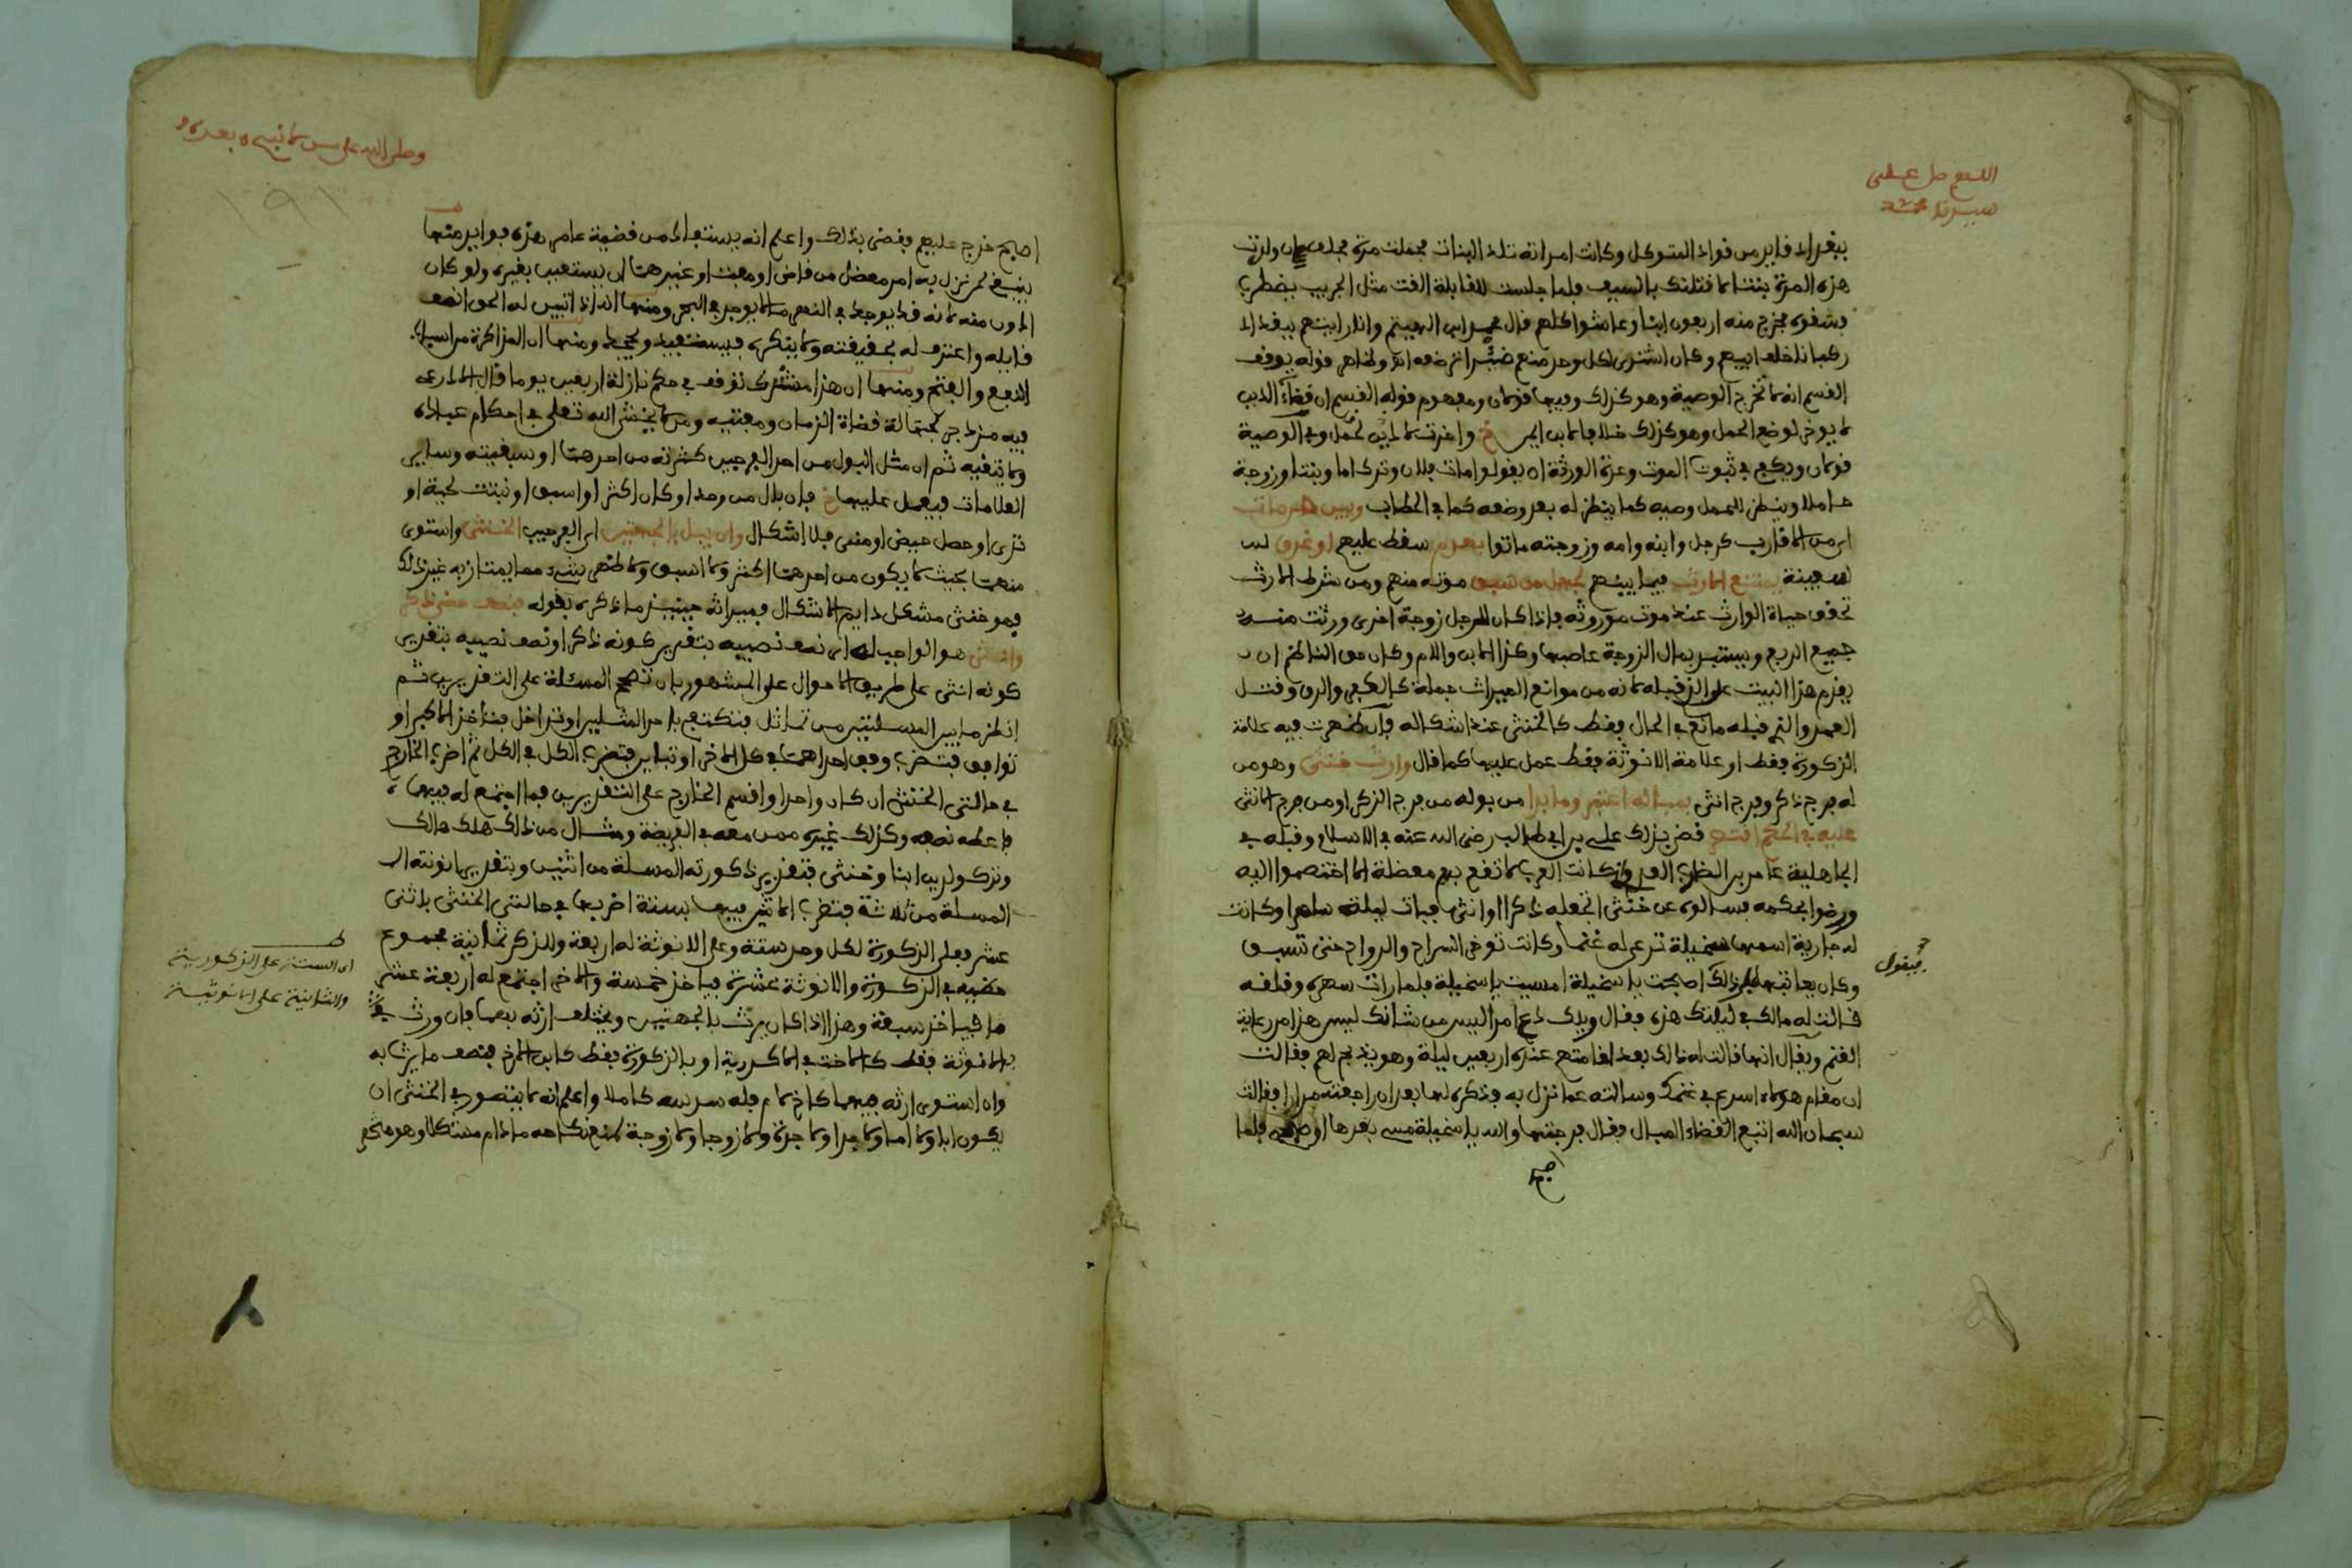 اللهم صل على
سيدنا محمد
ببغداد قايد من قواد المتوكل وكانت امرانه تلد البنات فحملت مرة فحلف ان ولدت
هذه المرة بنتا لاقتلنك بالسيف فلما جلست للقابلة القت مثل الجريب يضطرب
فشقوه فخرج منه اربعون ابنا وعاشوا كلهم قال محمد ابن الهيثم وانا رايتهم ببغداد
ركبانا خلف ابيهم وكان اشترى لكل وحد منهم ضئرا ترضعه وظاهر قوله يوقف
القسم انه لا تخرج الوصية وهو كذلك وفيها قولان ومفهوم قوله القسم ان قضاء الدين
لا يوخر لوضع الحمل وهو كذلك خلافا لابن ايمن
قولان ويكفي في ثبوت الموت وعدة الورثة ان يقولوا مات فلان وترك اما وبنتا وزوجة
حاملا وينظر للحمل وصيه كما ينظر له بعد وضعه كما في الحطاب وبين
اي من الاقارب كرجل وابنه وامه وزوجته ماتوا بهدم سقط عليهم او غرق
سفينة يمتنع الارث فيما بينهم لجهل من سبق موته منهم ومن شرط الارث
تحقق حياة الوارث عند موت موروثه فاذا كان للرجل زوجة اخرى ورثت منه
جميع الربع ويستبد بمال الزوجة عاصبها وكذا الابن والام وكان حق الناظم ان
يقدم هذا البيت على الذي قبله لانه من موانع الميراث جملة كالكفر والرق وقتل
العمد والذي قبله مانع في الحال فقط كالخنثى عند اشكاله فان ظهرت فيه علامة
الذكورة فقط او علامة الانوثة فقط عمل عليها كما قال وارث خنثى وهو من
له فرج ذكر وفرج انثى بمباله اعتبر وما بدا من بوله من فرج الذكر او من فرج الانثى
عليه في الحكم اقتصر قضى بذلك علي بن ابي طالب رضي الله عنه في الاسلام وقبله في
الجاهلية عامر بن الظرب العدواني كانت العرب لا تقع بهم معضلة الا اختصموا اليه
ورضوا بحكمه فسالوه عن خنثى اتجعله ذكرا او انثى فبات ليلته ساهرا وكانت
له جارية اسمها سخيلة ترعى له غنما وكانت توخر السراح والرواح حتى تسبق
فيقول
وكان يعاتبها على ذلك اصبحت يا سخيلة امسيت يا سخيلة فلما رات سهره وقلقه
قالت له مالك في ليلتك هذه فقال ويلك دع امرا ليس من شانك ليس هذا من رعاية
الغنم ويقال انها قالت له ذلك بعد اقامتهم عنده اربعين ليلة وهو يذبح لهم فقالت
ان مقام هولاء اسرع في غنمك وسالته عما نزل به فذكره لها بعد ان راجعته مرارا فقالت
سبحان الله اتبع القضاء المبال فقال فرجتها والله يا سخيلة مسي بعدها او صبحي فلما
اصبح
وصلى الله على من لا نبي بعده
١٩١
اصبح خرج عليهم وقضى بذلك واعلم انه يستفاد من قضية عامر هذه فوايد منها
ينبغي لمن نزل به امر معضل من قاض او مفت او غيرهما ان يستعين بغيره ولو كان
ادون منه لانه قد يوجد في النهر ما لا يوجد في البحر ومنها انه اذا تبين له الحق انصف
قايله واعترف له بحقيقته ولا ينكره فيستفيد ويجحد ومنها ان المذاكرة من اسباب
النفع والفتح ومنها ان هذا مشرك توقف في حكم نازلة اربعين يوما قال الاوزاعي
فيه مزدجر لجهالة قضاة الزمان ومفتيه ومن لا يخش الله تعلى في احكام عباده
ولا يتقيه ثم ان مثل البول من احد الفرجين كثرته من احدهما او سبقيته وساير
العلامات فيعمل عليها خ فان بال من وحد او كان اكثر او اسبق او نبتت لحية او
ثدي او حصل حيض او منى فلا اشكال وان يبل بالجهتين اي الفرجين الخنثى واستوى
منهما بحيث لا يكون من احدهما اكثر ولا اسبق ولا ظهر شيء مما يمتاز به غير ذلك
فهو خنثى مشكل دايم الاشكال فميراثه حينيذ ما ذكره بقوله فنصف حظي ذكر
وانثى هو الواجب له اي نصف نصيبه بتقدير كونه ذكرا ونصف نصيبه بتقدير
كونه انثى على طريق الاحوال على المشهور بان تصحح المسئلة على التقديرين ثم
انظر ما بين المسئلتين من تماثل فتكتفي باحد المثلين او تداخل فتاخذ الاكبر او
توافق فتضرب وفق احداهما في كل الاخرى او تباين فتضرب الكل في الكل ثم اضرب الخارج
في حالتي الخنثى ان كان واحدا واقسم الخارج على التقديرين فما اجتمع له فيهما
فاعطه نصفه وكذلك غيره ممن معه في الفريضة ومثال من ذلك هلك هالك
وترك ولدين ابنا وخنثى فتقدير ذكورته المسلة من اثنين وبتقدير انوثته
المسلة من ثلاثة فتضرب الاثنين فيها بستة اضربها في حالتي الخنثى باثنى
عشر فعلى الذكورة لكل وحد ستة وعلى الانوثة له اربعة وللذكر ثمانية مجموع
حظيه في الذكورة والانوثة عشرة فياخذ خمسة والاخر اجتمع له اربعة عشر
فياخذ سبعة وهذا اذا كان يرث بالجهتين ويختلف ارثه بهما فان ورث
بالانوثة فقط كالاخت في الاكدرية او بالذكورة فقط كابن الاخ فنصف ما يرث به
وان استوى ارثه فيهما كاخ لام فله سدسه كاملا واعلم انه لا يتصور في الخنثى ان
يكون ابا ولا اما ولا جدا ولا جدة ولا زوجا ولا زوجة لمنع نكاحه ما دام مشكلا وهو منحصر
اي الستة على الذكورية
والثمانية على الانوثية